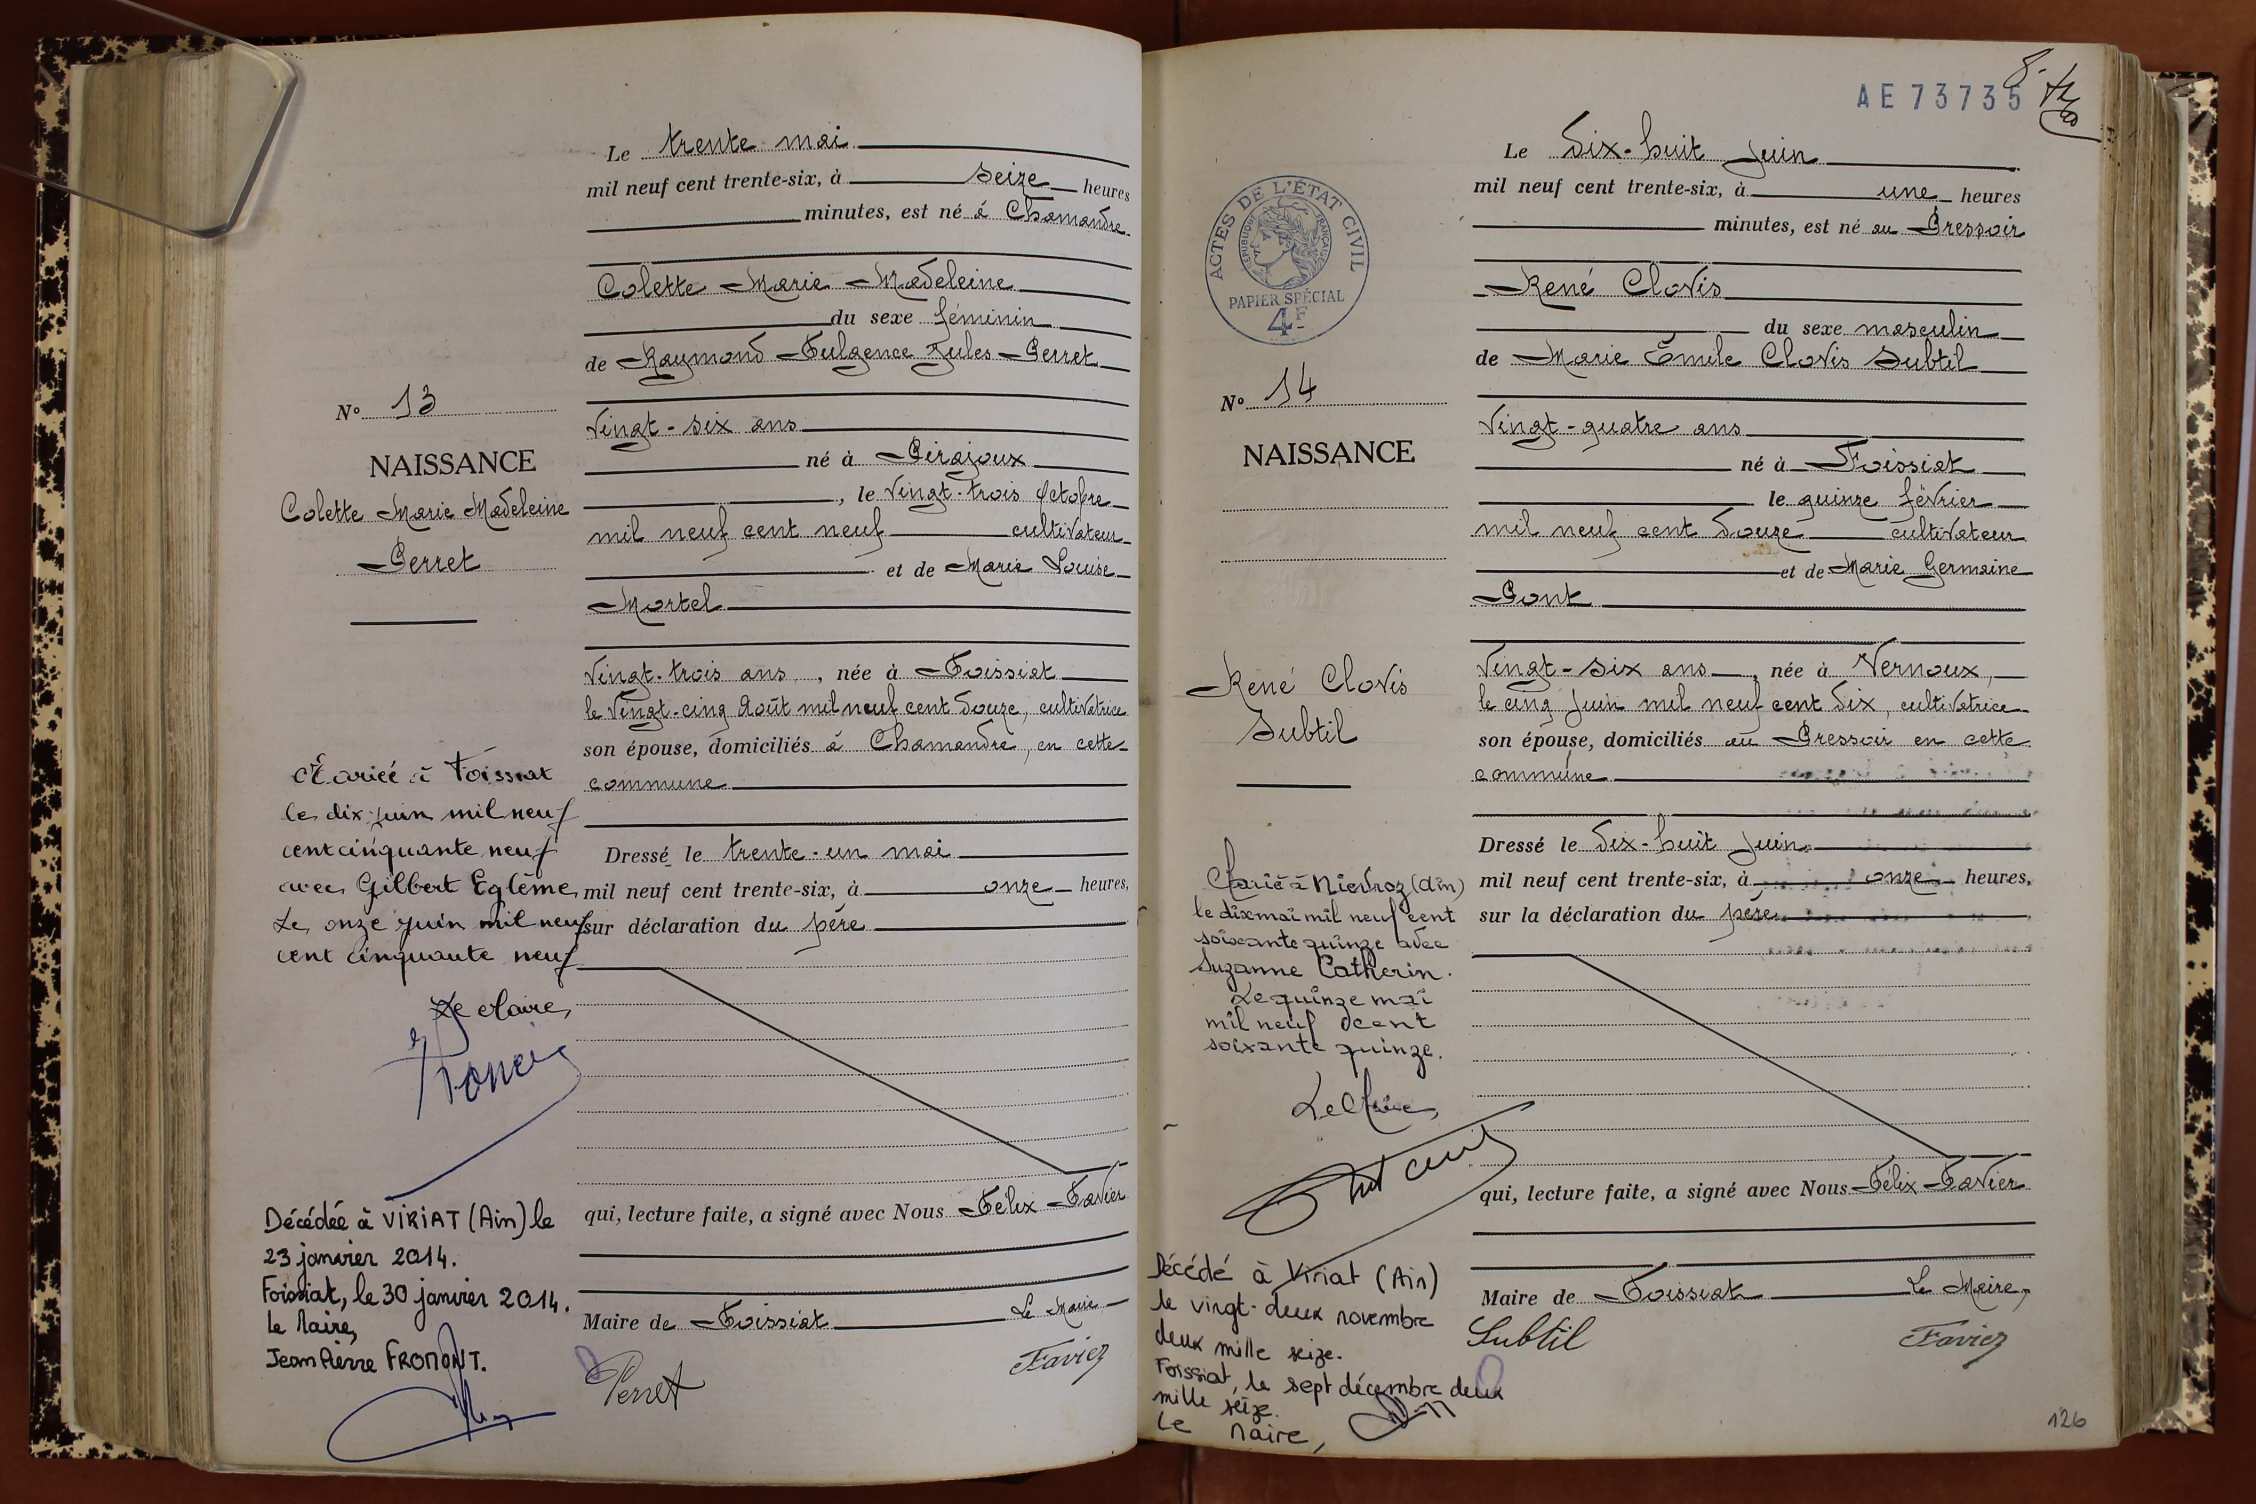 Le trente mai
mil neuf cent trente-six, à seize heures
minutes, est né à Chamandre
Colette Marie Madeleine
du sexe féminin
de Raymond Fulgence Jules Perret
N° 13
Vingt-six ans
NAISSANCE
né à Pirajoux
Colette Marie Madeleine
, le Vingt-trois Octobre
mil neuf cent neuf cultivateur
Perret
et de Marie Louise
Mortel
Vingt-trois ans, née à Foissiat
le Vingt-cinq Août mil neuf cent douze, cultivatrice
son épouse, domiciliés à Chamandre, en cette
commune
Mariée à Foissiat
le dix juin mil neuf
cent cinquante neuf
avec Gilbert Eglème
Le onze juin mil neuf
cent cinquante neuf
Le Maire,
Dressé le trente-un mai
mil neuf cent trente-six, à onze heures,
sur déclaration du père
qui, lecture faite, a signé avec Nous Félix Favier
Maire de Foissiat Le Maire
Perret Favier
Décédée à VIRIAT (Ain) le
23 janvier 2014.
Foissiat, le 30 janvier 2014.
Le Maire,
Jean Pierre FROMONT.
AE 73735
Le dix-huit juin
mil neuf cent trente-six, à une heures
minutes, est né au Pressoir
ACTES DE L'ÉTAT CIVIL
RÉPUBLIQUE FRANÇAISE
PAPIER SPÉCIAL
4F
René Clovis
du sexe masculin
de Marie Émile Clovis Subtil
N° 14
Vingt-quatre ans
NAISSANCE
né à Foissiat
le quinze février
mil neuf cent douze cultivateur
et de Marie Germaine
Pont
René Clovis
Subtil
Vingt-six ans, née à Vernoux,
le cinq juin mil neuf cent dix, cultivatrice
son épouse, domiciliés au Pressoir en cette
commune
Dressé le dix-huit juin
mil neuf cent trente-six, à onze heures,
sur la déclaration du père
Marié à Niévroz (Ain)
le dix mai mil neuf cent
soixante quinze avec
Suzanne Catherin.
Le quinze mai
mil neuf cent
soixante quinze.
Le Maire,
qui, lecture faite, a signé avec Nous Félix Favier
Maire de Foissiat Le Maire,
Subtil Favier
Décédé à Viriat (Ain)
le vingt-deux novembre
deux mille seize.
Foissiat, le sept décembre deux
mille seize.
Le Maire,
126